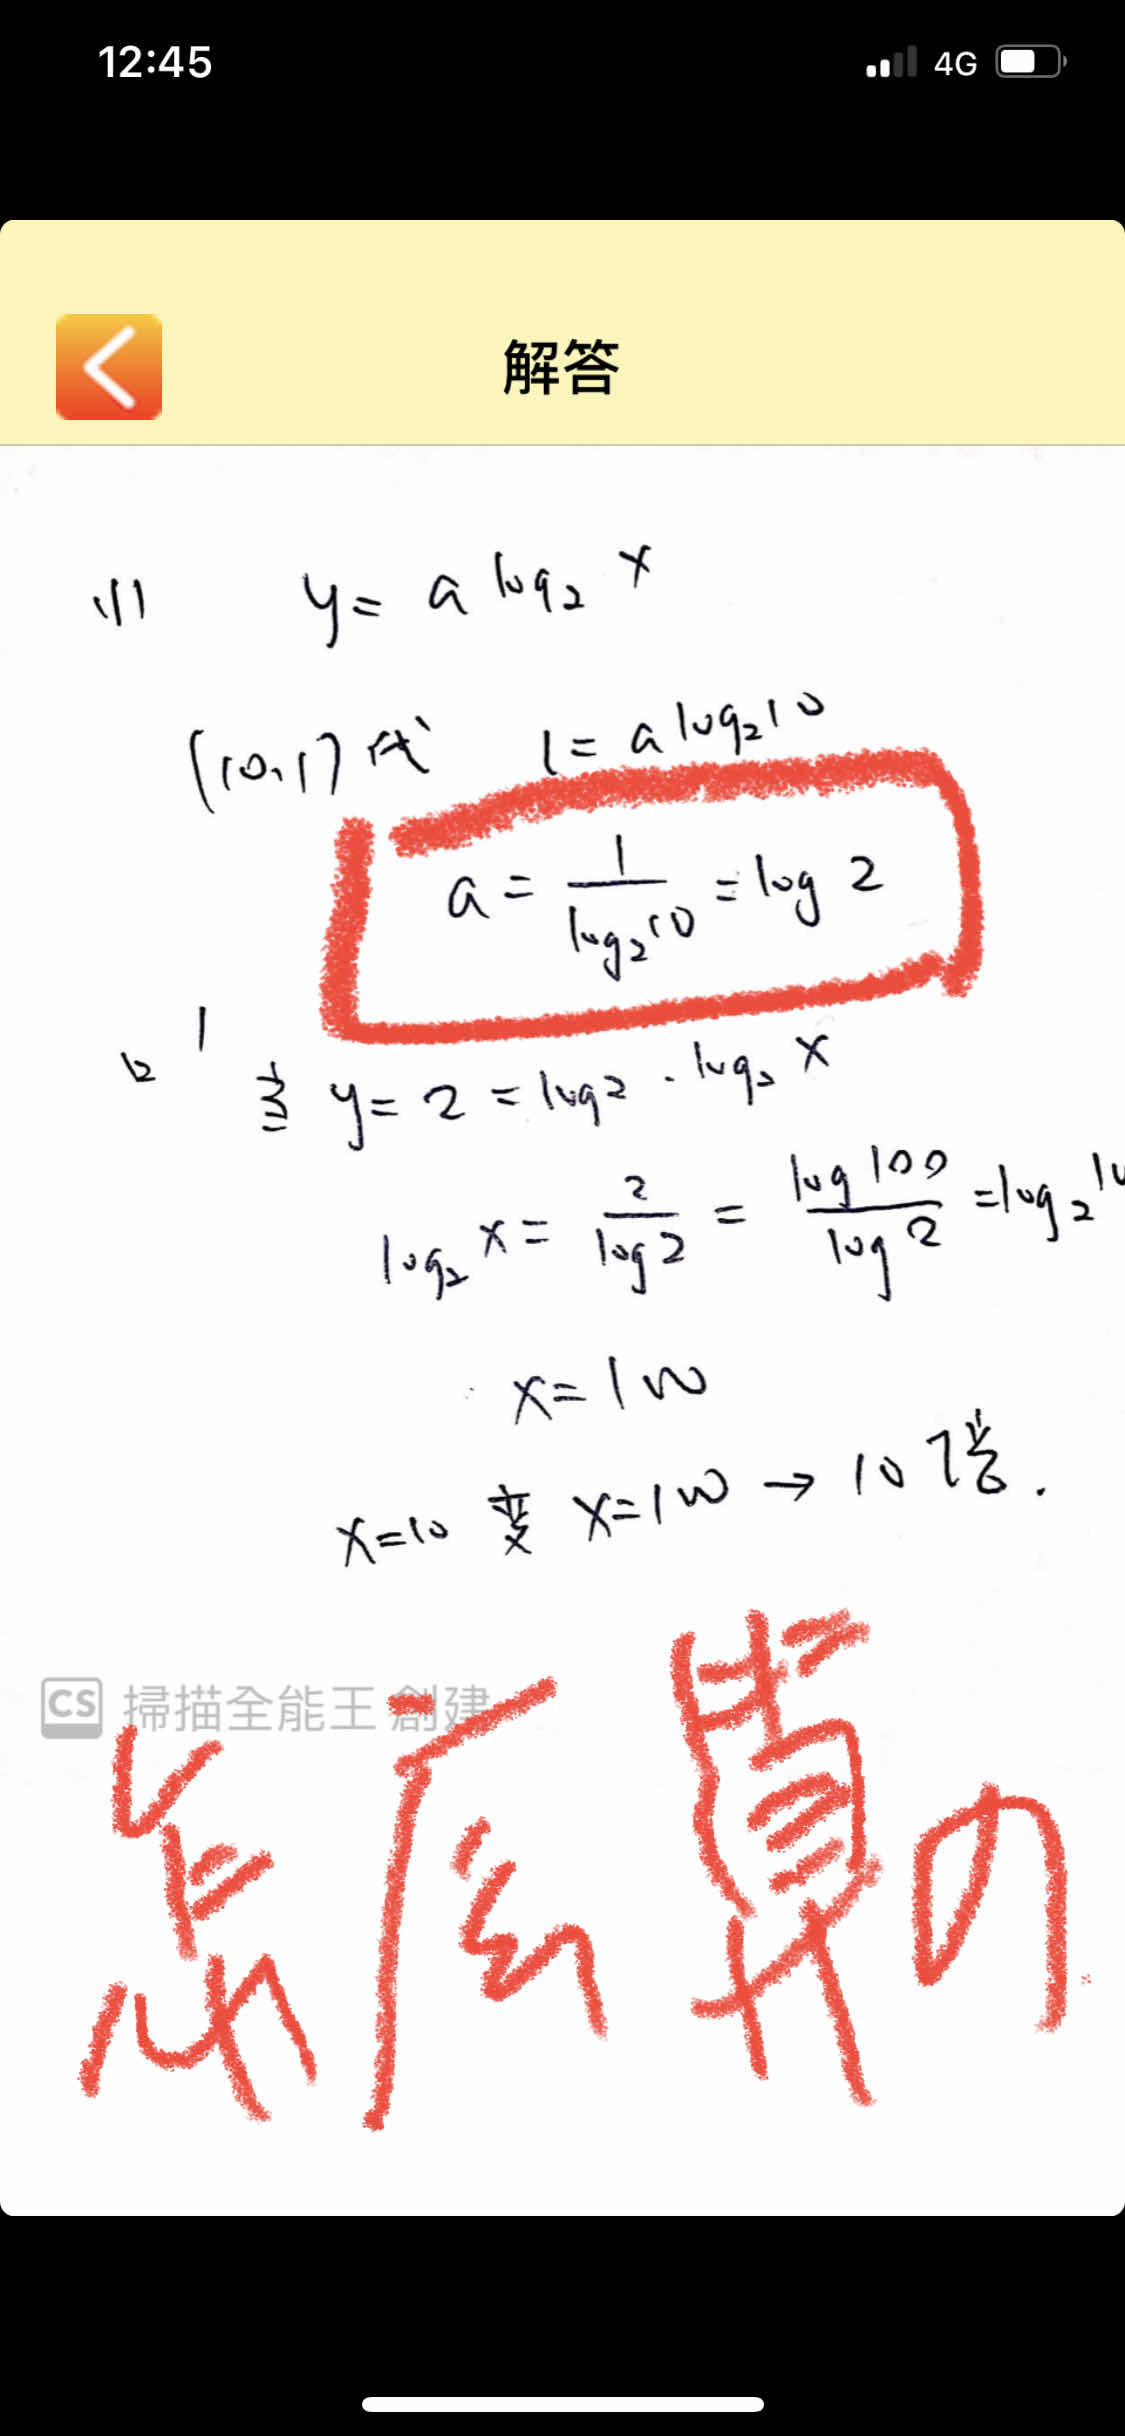 12:45
4G
解答
(1) y = a log₂ x
(10,1)代 1 = a log₂10
a = 1/log₂10 = log 2
(2) 1
當 y = 2 = log2 · log₂ x
log₂ x = 2/log2 = log100/log2 = log₂10
x = 100
x=10 變 x=100 → 10倍.
CS 掃描全能王 創建
怎麼算の